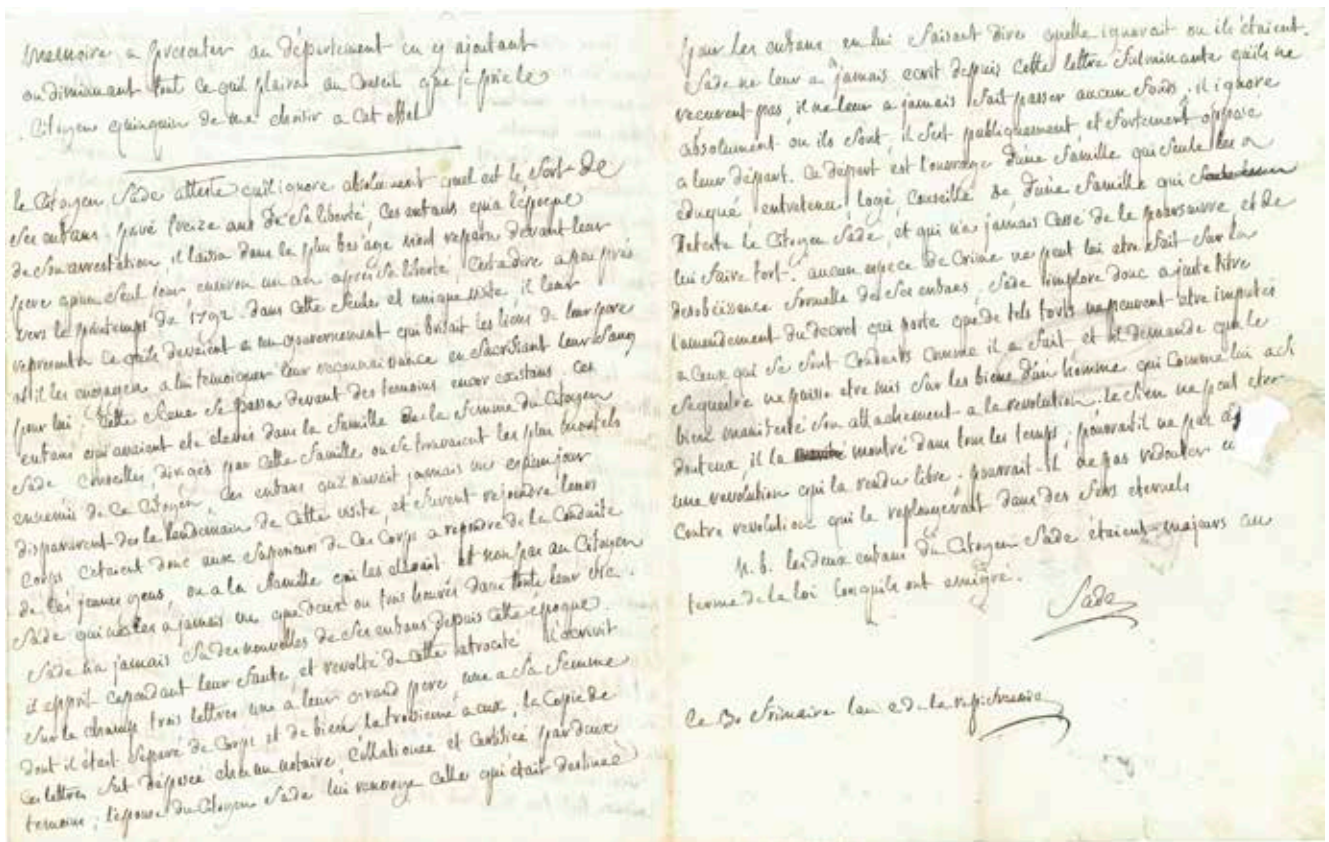 memoire a presenter au département en y ajoutant
ou diminuant tout ce quil plaira au Conseil que je prie le
Citoyen quinquin de me choisir a cet effet
le Citoyen Sade atteste quil ignore absolument quel est le sort de
ses enfans. privé treize ans de sa liberté, ces enfans qua l'époque
de son arrestation il laissa dans le plus bas âge nont reparu devant leur
pere quun seul jour environ un an après sa liberté, cestadire a peu près
vers le printemps de 1792. dans cette seule et unique visite, il leur
representa ce quils devaient a un gouvernement qui brisait les liens de leur pere
et il les engagea a lui temoigner leur reconnaissance en sacrifiant leur sang
pour lui. Cette scene se passa devant des temoins encor existans. ces
enfans qui avaient eté eleves dans la famille de la femme du Citoyen
Sade Conseillés, dirigés par cette famille ou se trouvaient les plus mortels
ennemis de ce Citoyen, ces enfans quil navait jamais vus disparurent
disparurent des le lendemain de cette visite, et furent rejoindre leurs
Corps cetaient donc aux Superieurs de ces Corps a repondre de la Conduite
de ces jeunes gens ou a la famille qui les elevait et non pas au Citoyen
Sade qui ne les a jamais vus que deux ou trois heures dans toute leur vie.
Sade na jamais su des nouvelles de ses enfans depuis cette époque.
il apprit cependant leur fuite, et revolté de cette atrocité il écrivit
sur le champ trois lettres une a leur grand pere, une a sa femme
dont il était separé de Corps et de biens, la troisieme a eux, la Copie de
ces lettres fut déposée chez un notaire Collationée et Certifiée par deux
temoins; l'épouse du Citoyen Sade lui renvoya celle qui était destinée
pour les enfans en lui faisant dire quelle ignorait ou ils étaient.
Sade ne leur a jamais ecrit depuis cette lettre fulminante quils ne
recurent pas, il ne leur a jamais fait passer aucun fonds. il ignore
absolument ou ils sont, il sest publiquement et fortement opposé
a leur départ. Ce départ est l'ouvrage dune famille qui seule les a
eduqué entretenu logé, Conseillé &c, dune famille qui
Deteste le Citoyen Sade, et qui n'a jamais Cessé de le poursuivre et de
lui faire tort. aucun espece de Crime ne peut lui etre fait sur la
desobéissance formelle de ses enfans, Sade implore donc a juste titre
l'amendement du decret qui porte que de tels torts ne peuvent etre imputés
a Ceux qui se sont Conduits comme il a fait et il demande que le
Sequestre ne puisse etre mis sur les biens d'un homme qui comme lui a si
bien manifesté son attachement a la revolution. le sien ne peut etre
douteux il la montré dans tous les temps; pourrait il ne pas
une revolution qui la rendu libre. pourrait-il ne pas redouter
Contre revolution qui le replongerait dans des fers eternels
n. b. les deux enfans du Citoyen Sade étaient majeurs au
terme de la loi lorsquils ont emigré.
Sade
Ce 30 frimaire lan 2 de la republique